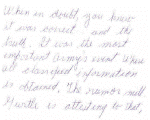 When in doubt, you knew
it was correct and the
truth. It was the most
important Army's event where
all classified information
is obtained. The rumor mill
is attesting to that,